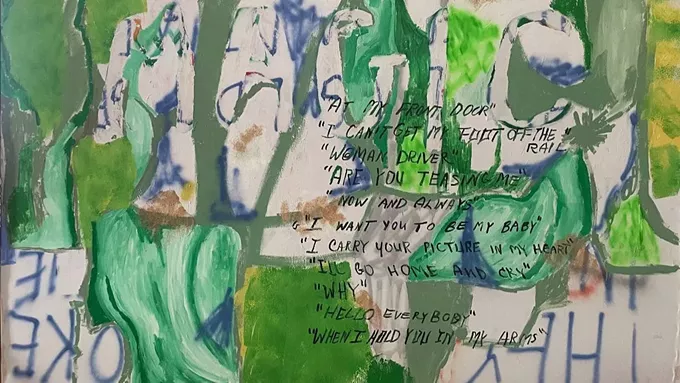 "AT MY FRONT DOOR"
"I CAN'T GET MY FOOT OFF THE
RAIL"
"WOMAN DRIVER"
"ARE YOU TEASING ME"
"NOW AND ALWAYS"
"I WANT YOU TO BE MY BABY"
"I CARRY YOUR PICTURE IN MY HEART"
"I'LL GO HOME AND CRY"
"WHY"
"HELLO EVERYBODY"
"WHEN I HOLD YOU IN MY ARMS"
OKE
THEY